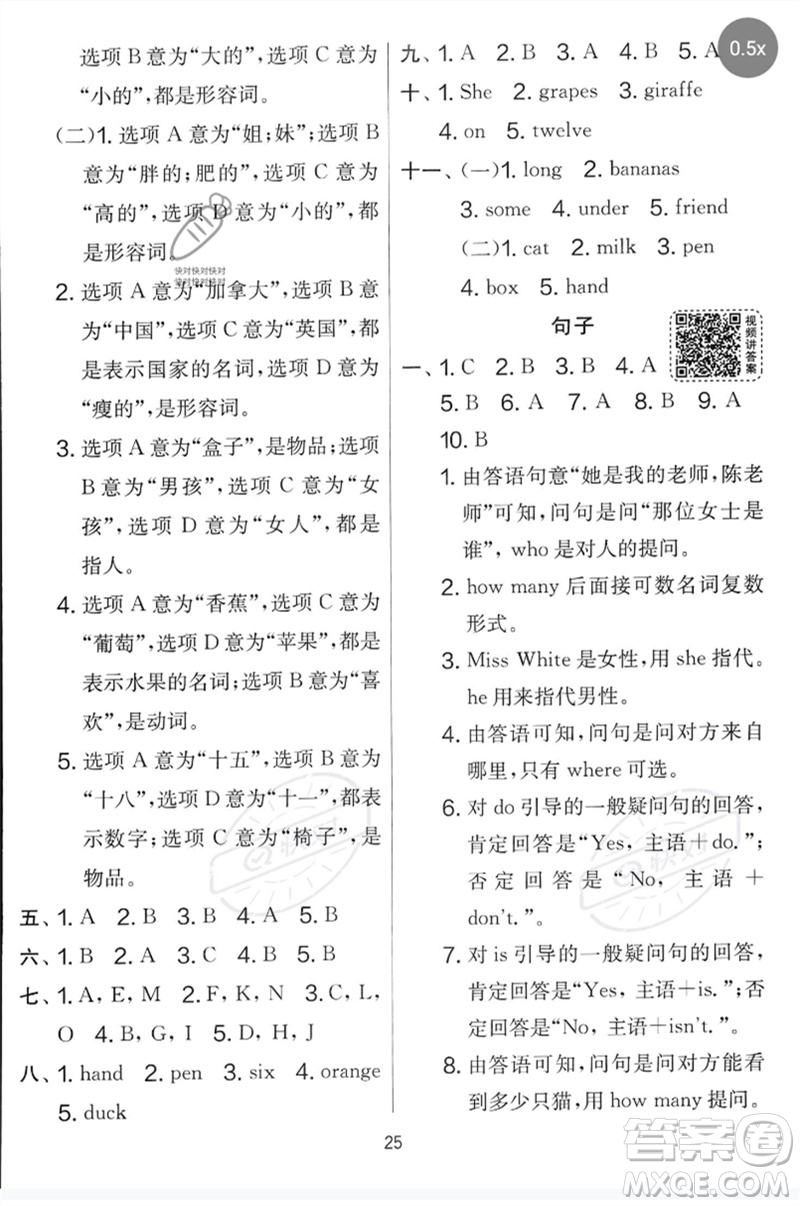 选项B意为“大的”，选项C意为
“小的”，都是形容词。
(二)1. 选项A意为“姐;妹”;选项B
意为“胖的;肥的”，选项C意为
“高的”，选项D意为“小的”，都
是形容词。
快对快对快对
快对快对快对
2. 选项A意为“加拿大”，选项B意
为“中国”，选项C意为“英国”，都
是表示国家的名词;选项D意为
“瘦的”，是形容词。
3. 选项A意为“盒子”，是物品;选项
B意为“男孩”，选项C意为“女
孩”，选项D意为“女人”，都是
指人。
4. 选项A意为“香蕉”，选项C意为
“葡萄”，选项D意为“苹果”，都是
表示水果的名词;选项B意为“喜
欢”，是动词。
5. 选项A意为“十五”，选项B意为
“十八”，选项D意为“十一”，都表
示数字;选项C意为“椅子”，是
物品。
五、1. A 2. B 3. B 4. A 5. B
六、1. B 2. A 3. C 4. B 5. B
七、1. A, E, M 2. F, K, N 3. C, L,
O 4. B, G, I 5. D, H, J
八、1. hand 2. pen 3. six 4. orange
5. duck
九、1. A 2. B 3. B 4. B 5. A
0.5x
十、1. She 2. grapes 3. giraffe
4. on 5. twelve
十一、(一)1. long 2. bananas
3. some 4. under 5. friend
(二)1. cat 2. milk 3. pen
4. box 5. hand
句子
视频讲答案
一、1. C 2. B 3. B 4. A
5. B 6. A 7. A 8. B 9. A
10. B
1. 由答语句意“她是我的老师，陈老
师”可知，问句是问“那位女士是
谁”，who是对人的提问。
2. how many后面接可数名词复数
形式。
3. Miss White是女性，用she指代。
he用来指代男性。
4. 由答语可知，问句是问对方来自
哪里，只有where可选。
6. 对do引导的一般疑问句的回答，
肯定回答是“Yes，主语+do.”;
否定回答是“No，主语+
don't.”。
7. 对is引导的一般疑问句的回答，
肯定回答是“Yes，主语+is.”;否
定回答是“No，主语+isn't.”。
8. 由答语可知，问句是问对方能看
到多少只猫，故用how many提问。
25
答案圈
MXQE.COM